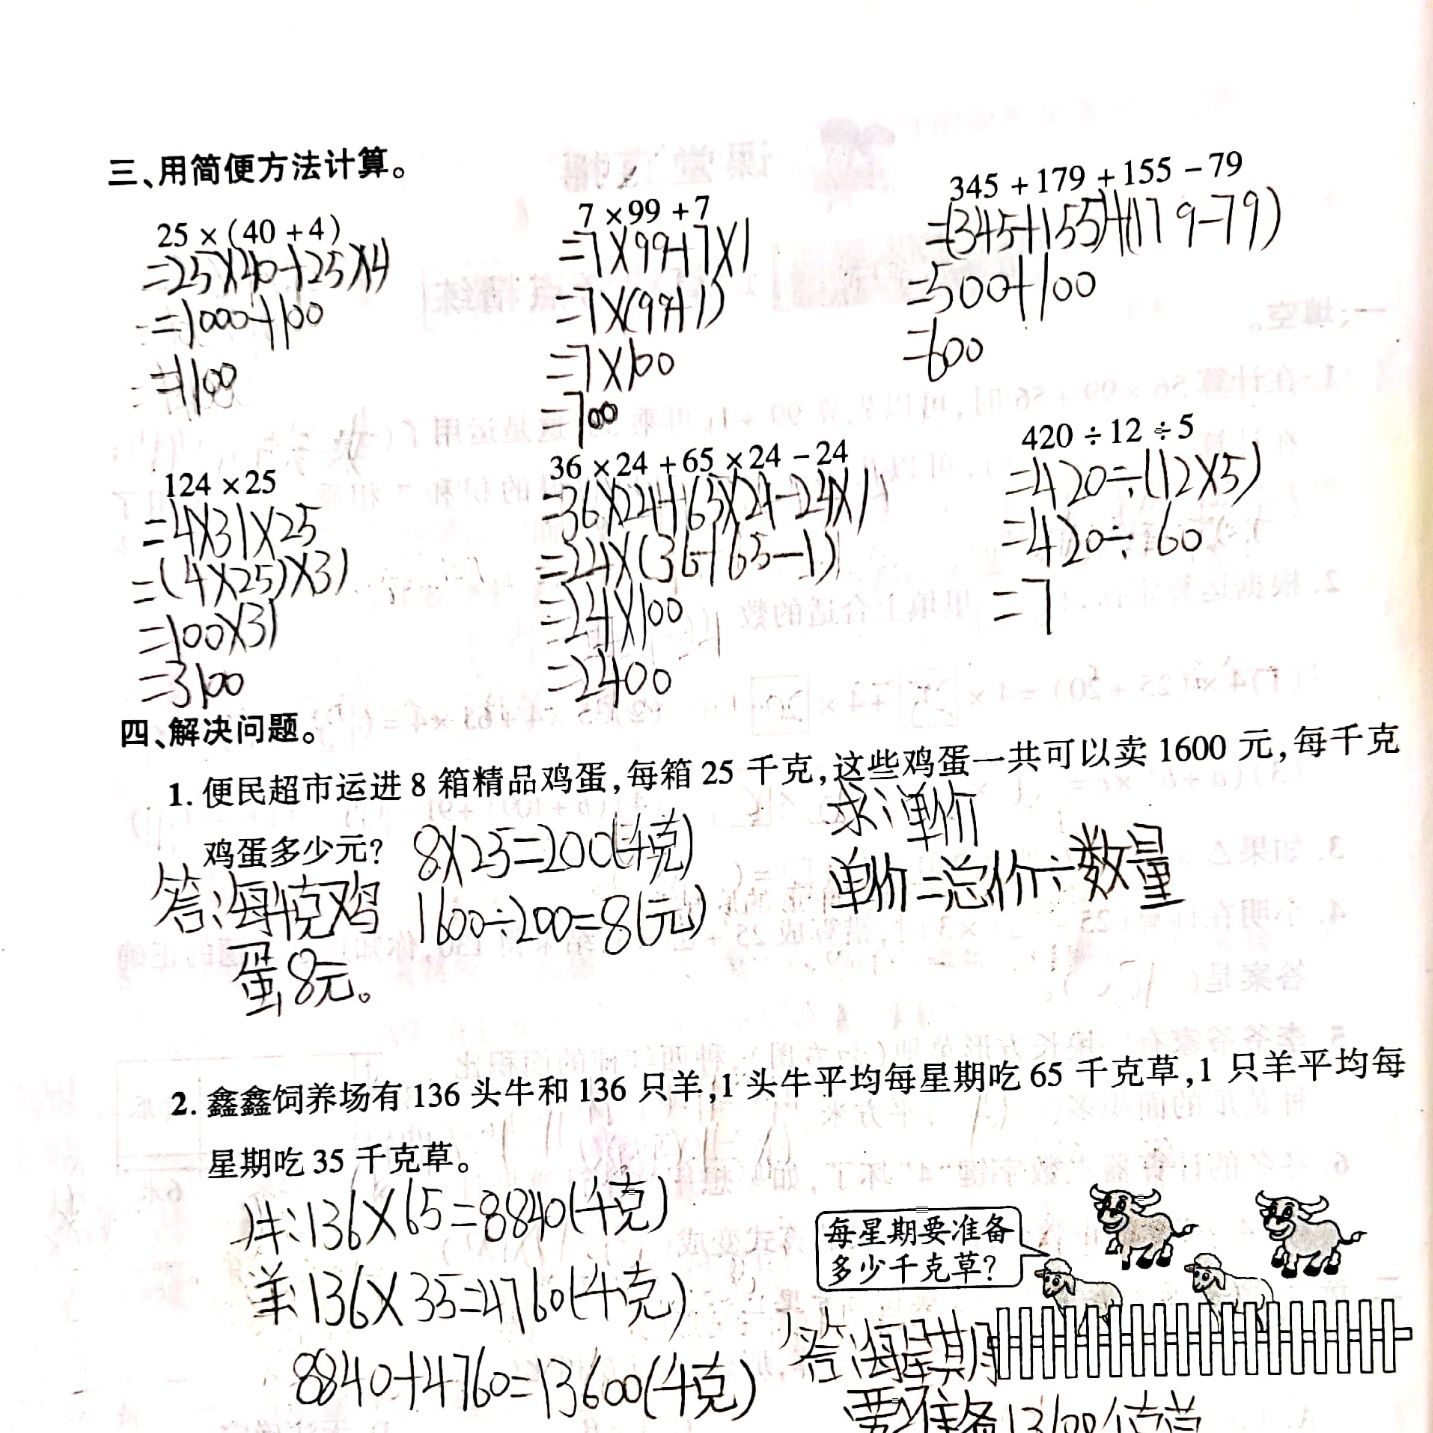 三、用简便方法计算。
25×(40+4)
=25×40+25×4
=1000+100
=1100
7×99+7
=7×99+7×1
=7×(99+1)
=7×100
=700
345+179+155-79
=(345+155)+(179-79)
=500+100
=600
124×25
=4×31×25
=(4×25)×31
=100×31
=3100
36×24+65×24-24
=36×24+65×24-24×1
=24×(36+65-1)
=24×100
=2400
420÷12÷5
=420÷(12×5)
=420÷60
=7
四、解决问题。
1. 便民超市运进8箱精品鸡蛋,每箱25千克,这些鸡蛋一共可以卖1600元,每千克
鸡蛋多少元?
8×25=200(千克)
1600÷200=8(元)
答:每千克鸡
蛋8元。
求:单价
单价=总价÷数量
2. 鑫鑫饲养场有136头牛和136只羊,1头牛平均每星期吃65千克草,1只羊平均每
星期吃35千克草。
牛:136×65=8840(千克)
羊:136×35=4760(千克)
8840+4760=13600(千克)
每星期要准备
多少千克草?
答:每星期
要准备13600千克草